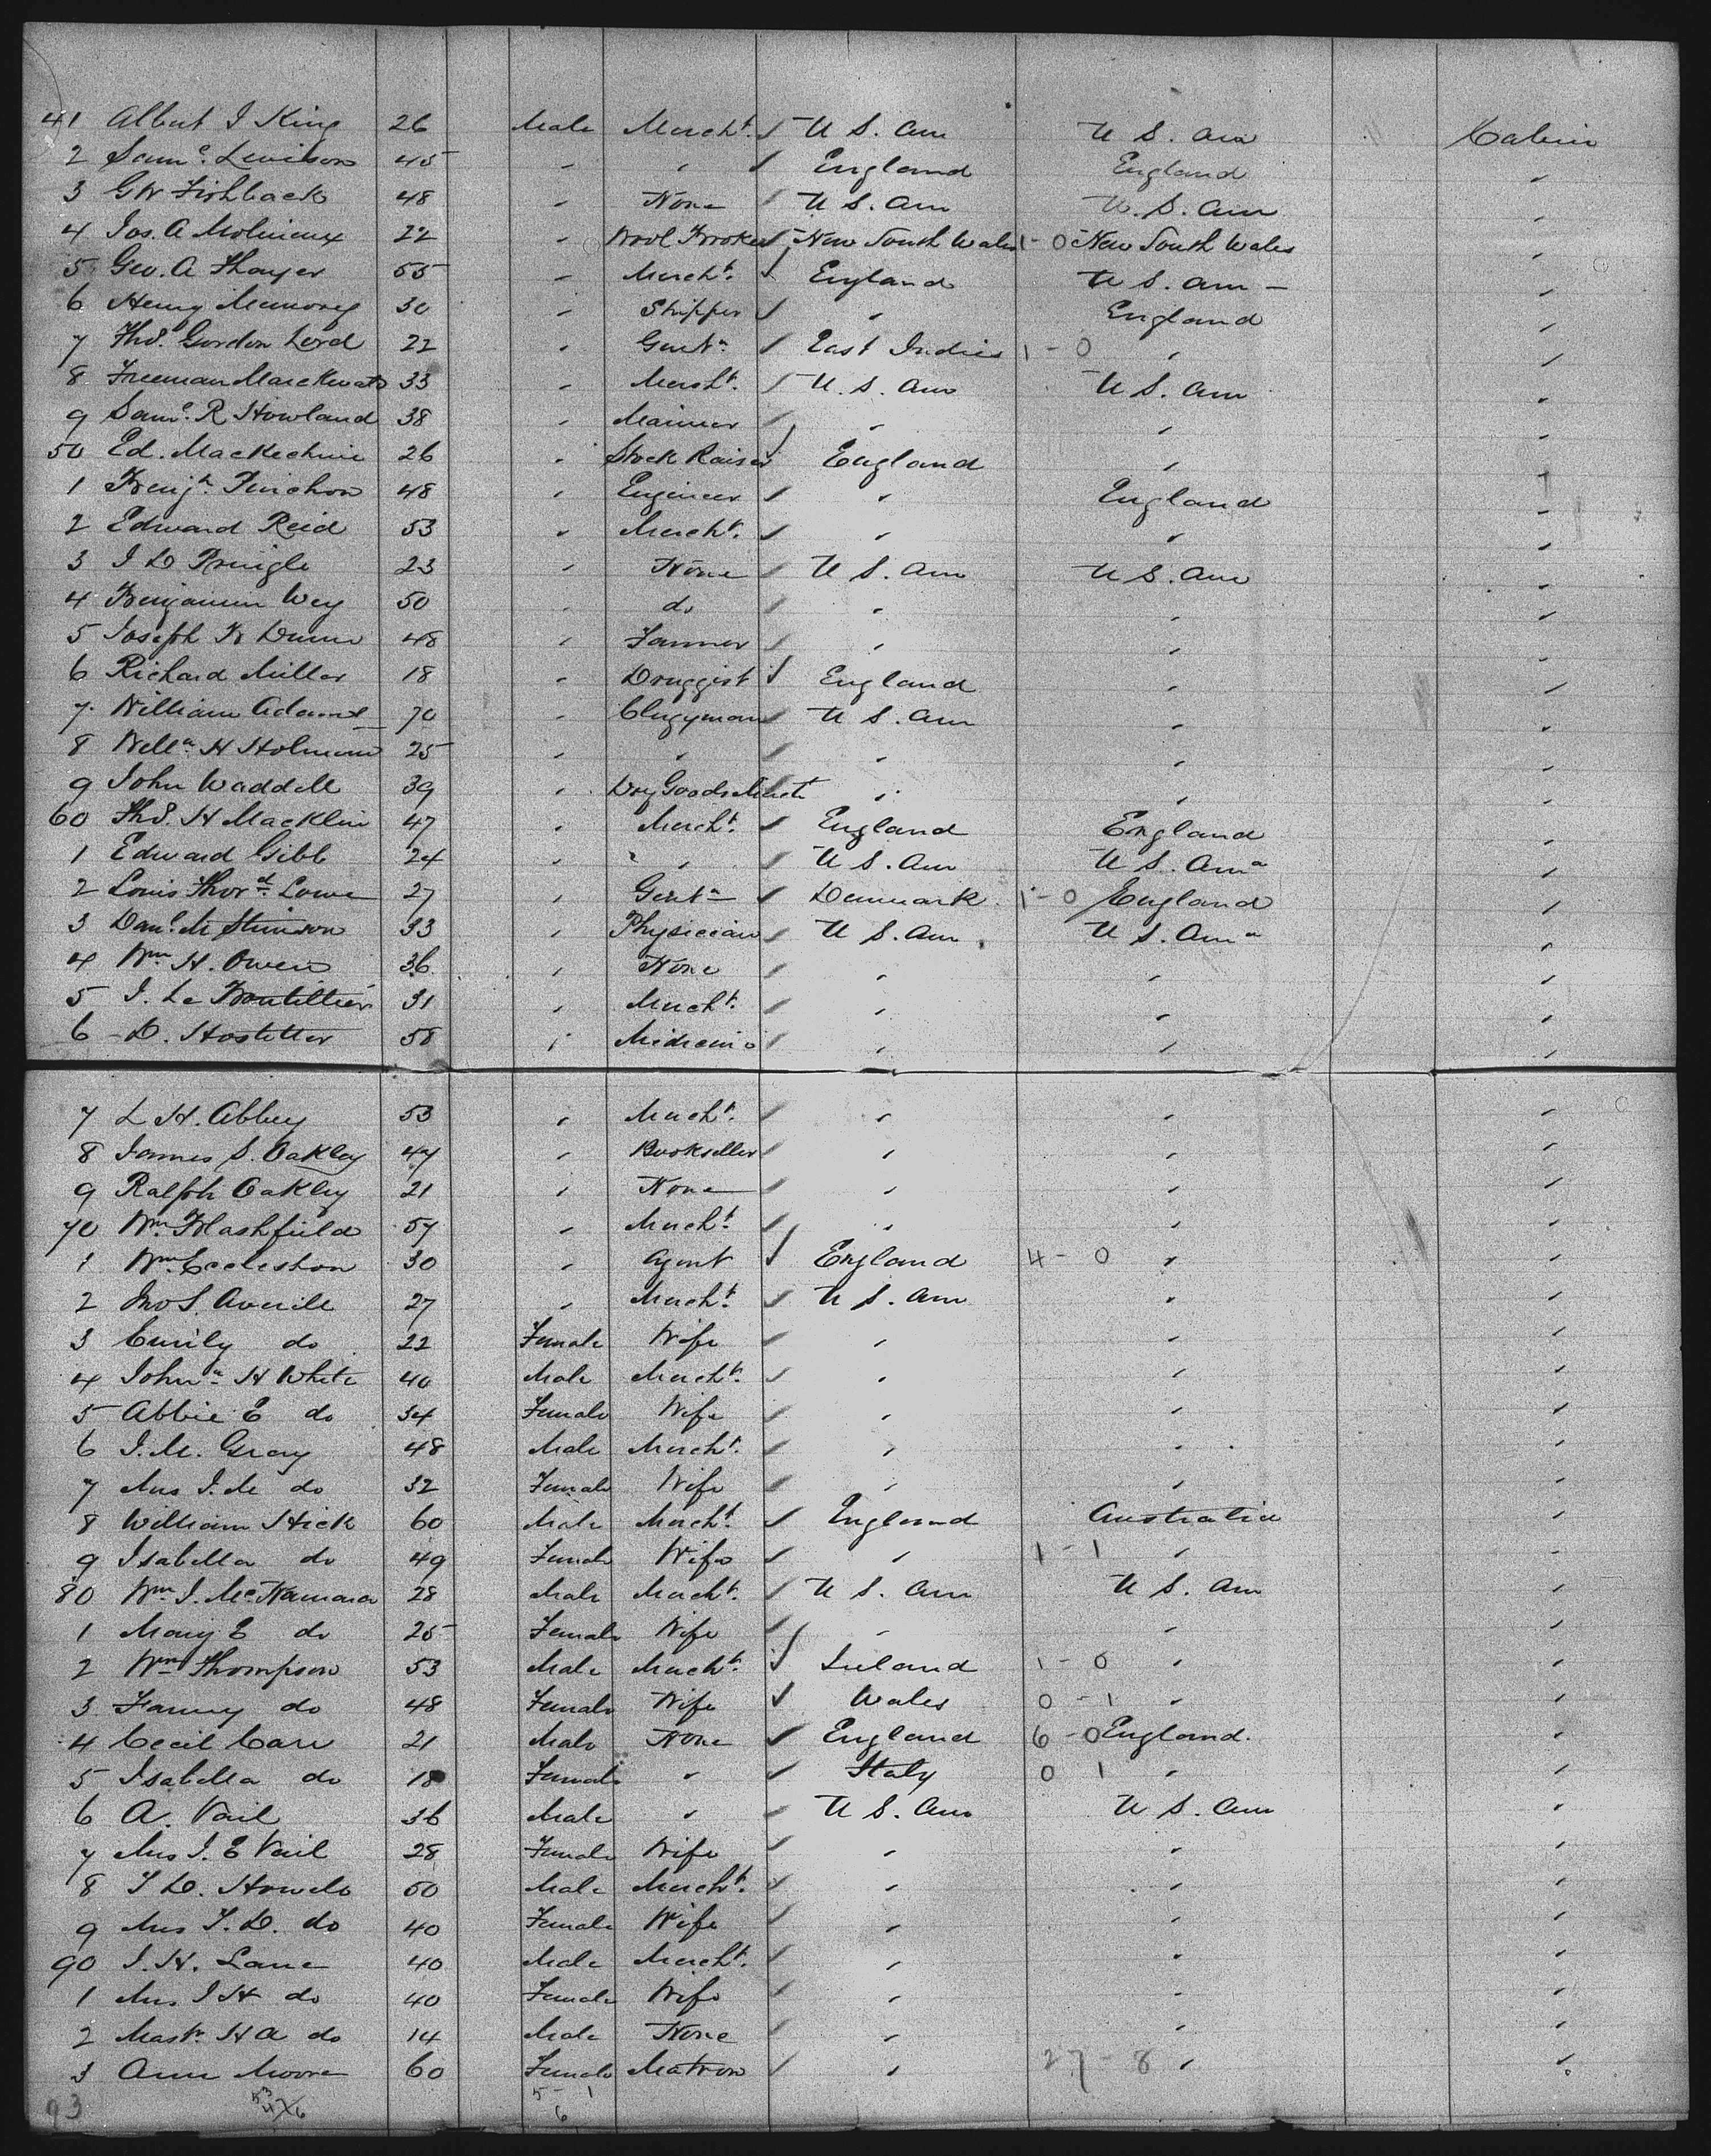 41 Albert J King 26 Male Mercht. U S. Am U S. Am Cabin
2 Saml. Levilson 45 " " England England "
3 GW Fishback 48 " None U S. Am U. S. Am "
4 Jas. A Molineux 22 " Wool Broker New South Wales 1 - 0 New South Wales "
5 Geo. A Thayer 55 " Mercht. England U S. Am - "
6 Henry 30 " Shipper " England "
7 Thos. Gordon Lord 22 " Gentn. East Indies 1 - 0 " "
8 Freeman 33 " Mercht. U. S. Am U S. Am "
9 Saml. R Howland 38 " Mariner " " "
50 Ed. MacKechnie 26 " Stock Raiser England " "
1 Benjn. Pinchon 48 " Engineer " England "
2 Edward Reid 53 " Mercht. " " "
3 J D Pringle 23 " None U S. Am U S. Am "
4 Benjamin Wey 50 " do " " "
5 Joseph B Dunn 48 " Farmer " " "
6 Richard Miller 18 " Druggist England " "
7 William Adams 70 " Clugyman U S. Am " "
8 Willm. H Holmum 25 " " " " "
9 John Waddell 39 " Dry Goods Mercht " " "
60 Thos. H Macklin 47 " Mercht. England England "
1 Edward Gibb 24 " " U S. Am U S. Ama "
2 Louis Thord. Lowe 27 " Gentn Denmark 1 - 0 England "
3 Danl. M Stimson 33 " Physician U S. Am U S. Ama "
4 Wm H. Owen 36 " None " " "
5 J. Le Boutillier 31 " Mercht. " " "
6 D. Hostetter 58 " Medicine " " "
7 L H. Abbey 53 " Mercht. " " "
8 James S. Oakley 47 " Bookseller " " "
9 Ralph Oakley 21 " None " " "
70 Wm. Blashfield 57 " Mercht. " " "
1 Wm. Eccleston 30 " Agent England 4 - 0 " "
2 Jno S. Averill 27 " Mercht. U S. Am " "
3 Emily do 22 Female Wife " " "
4 Johnn H White 40 Male Mercht. " " "
5 Abbie E do 34 Female Wife " " "
6 J. M. Gray 48 Male Mercht. " " "
7 Mrs J. M do 32 Female Wife " " "
8 William Hick 60 Male Mercht. England Australia "
9 Isabella do 49 Female Wife " 1 - 1 " "
80 Wm J. McNamara 28 Male Mercht. U S. Am U S. Am "
1 Mary E do 25 Female Wife " " "
2 Wm Thompson 53 Male Mercht. Ireland 1 - 0 " "
3 Fanny do 48 Female Wife Wales 0 - 1 " "
4 Cecil Carr 21 Male None England 6 - 0 England. "
5 Isabella do 18 Female " Italy 0 1 " "
6 A. Vail 36 Male " U S. Am U S. Am "
7 Mrs J. E Vail 28 Female Wife " " "
8 J D. 50 Male Mercht. " " "
9 Mrs J. D. do 40 Female Wife " " "
90 J. H. Lane 40 Male Mercht. " " "
1 Mrs J H do 40 Female Wife " " "
2 Mastr H A do 14 Male None " " "
3 Ann Moore 60 Female Matron " 27 - 8 " "
93 5 - 1
6